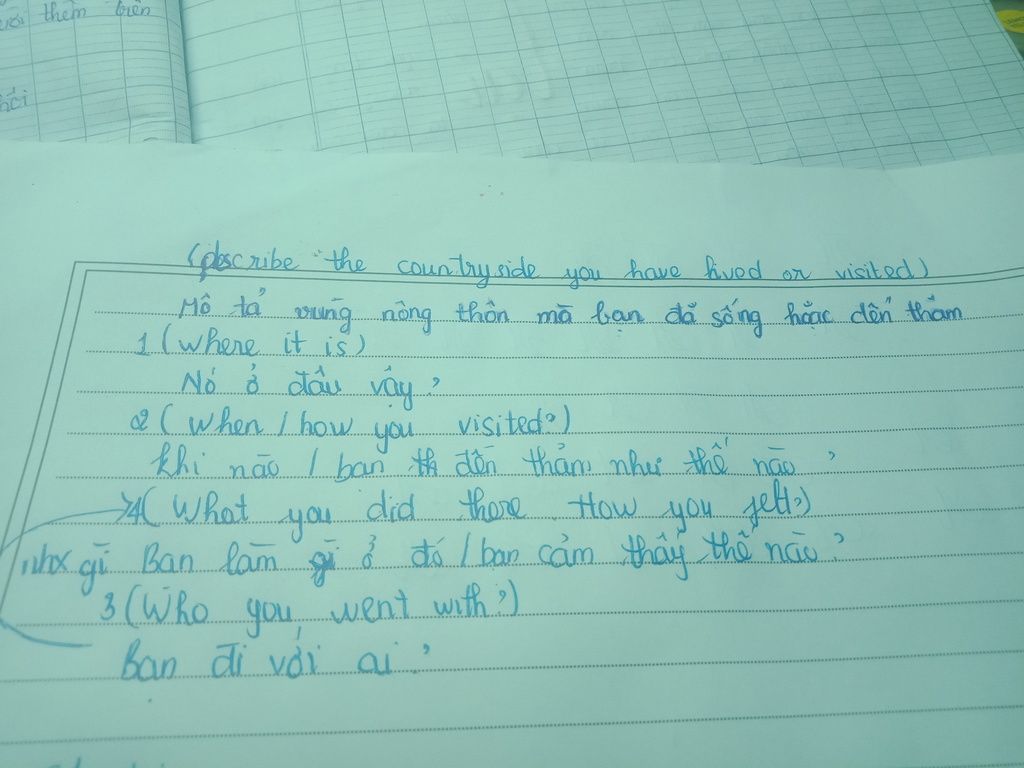 them biên
(Describe the countryside you have lived or visited)
Mô tả vùng nông thôn mà bạn đã sống hoặc đến thăm
1 (where it is)
Nó ở đâu vậy?
2 (When / how you visited?)
khi nào / bạn th đến thăm như thế nào ?
4 (What you did there How you felt?)
gì Bạn làm gì ở đó / bạn cảm thấy thế nào ?
3 (Who you went with?)
Bạn đi với ai ?